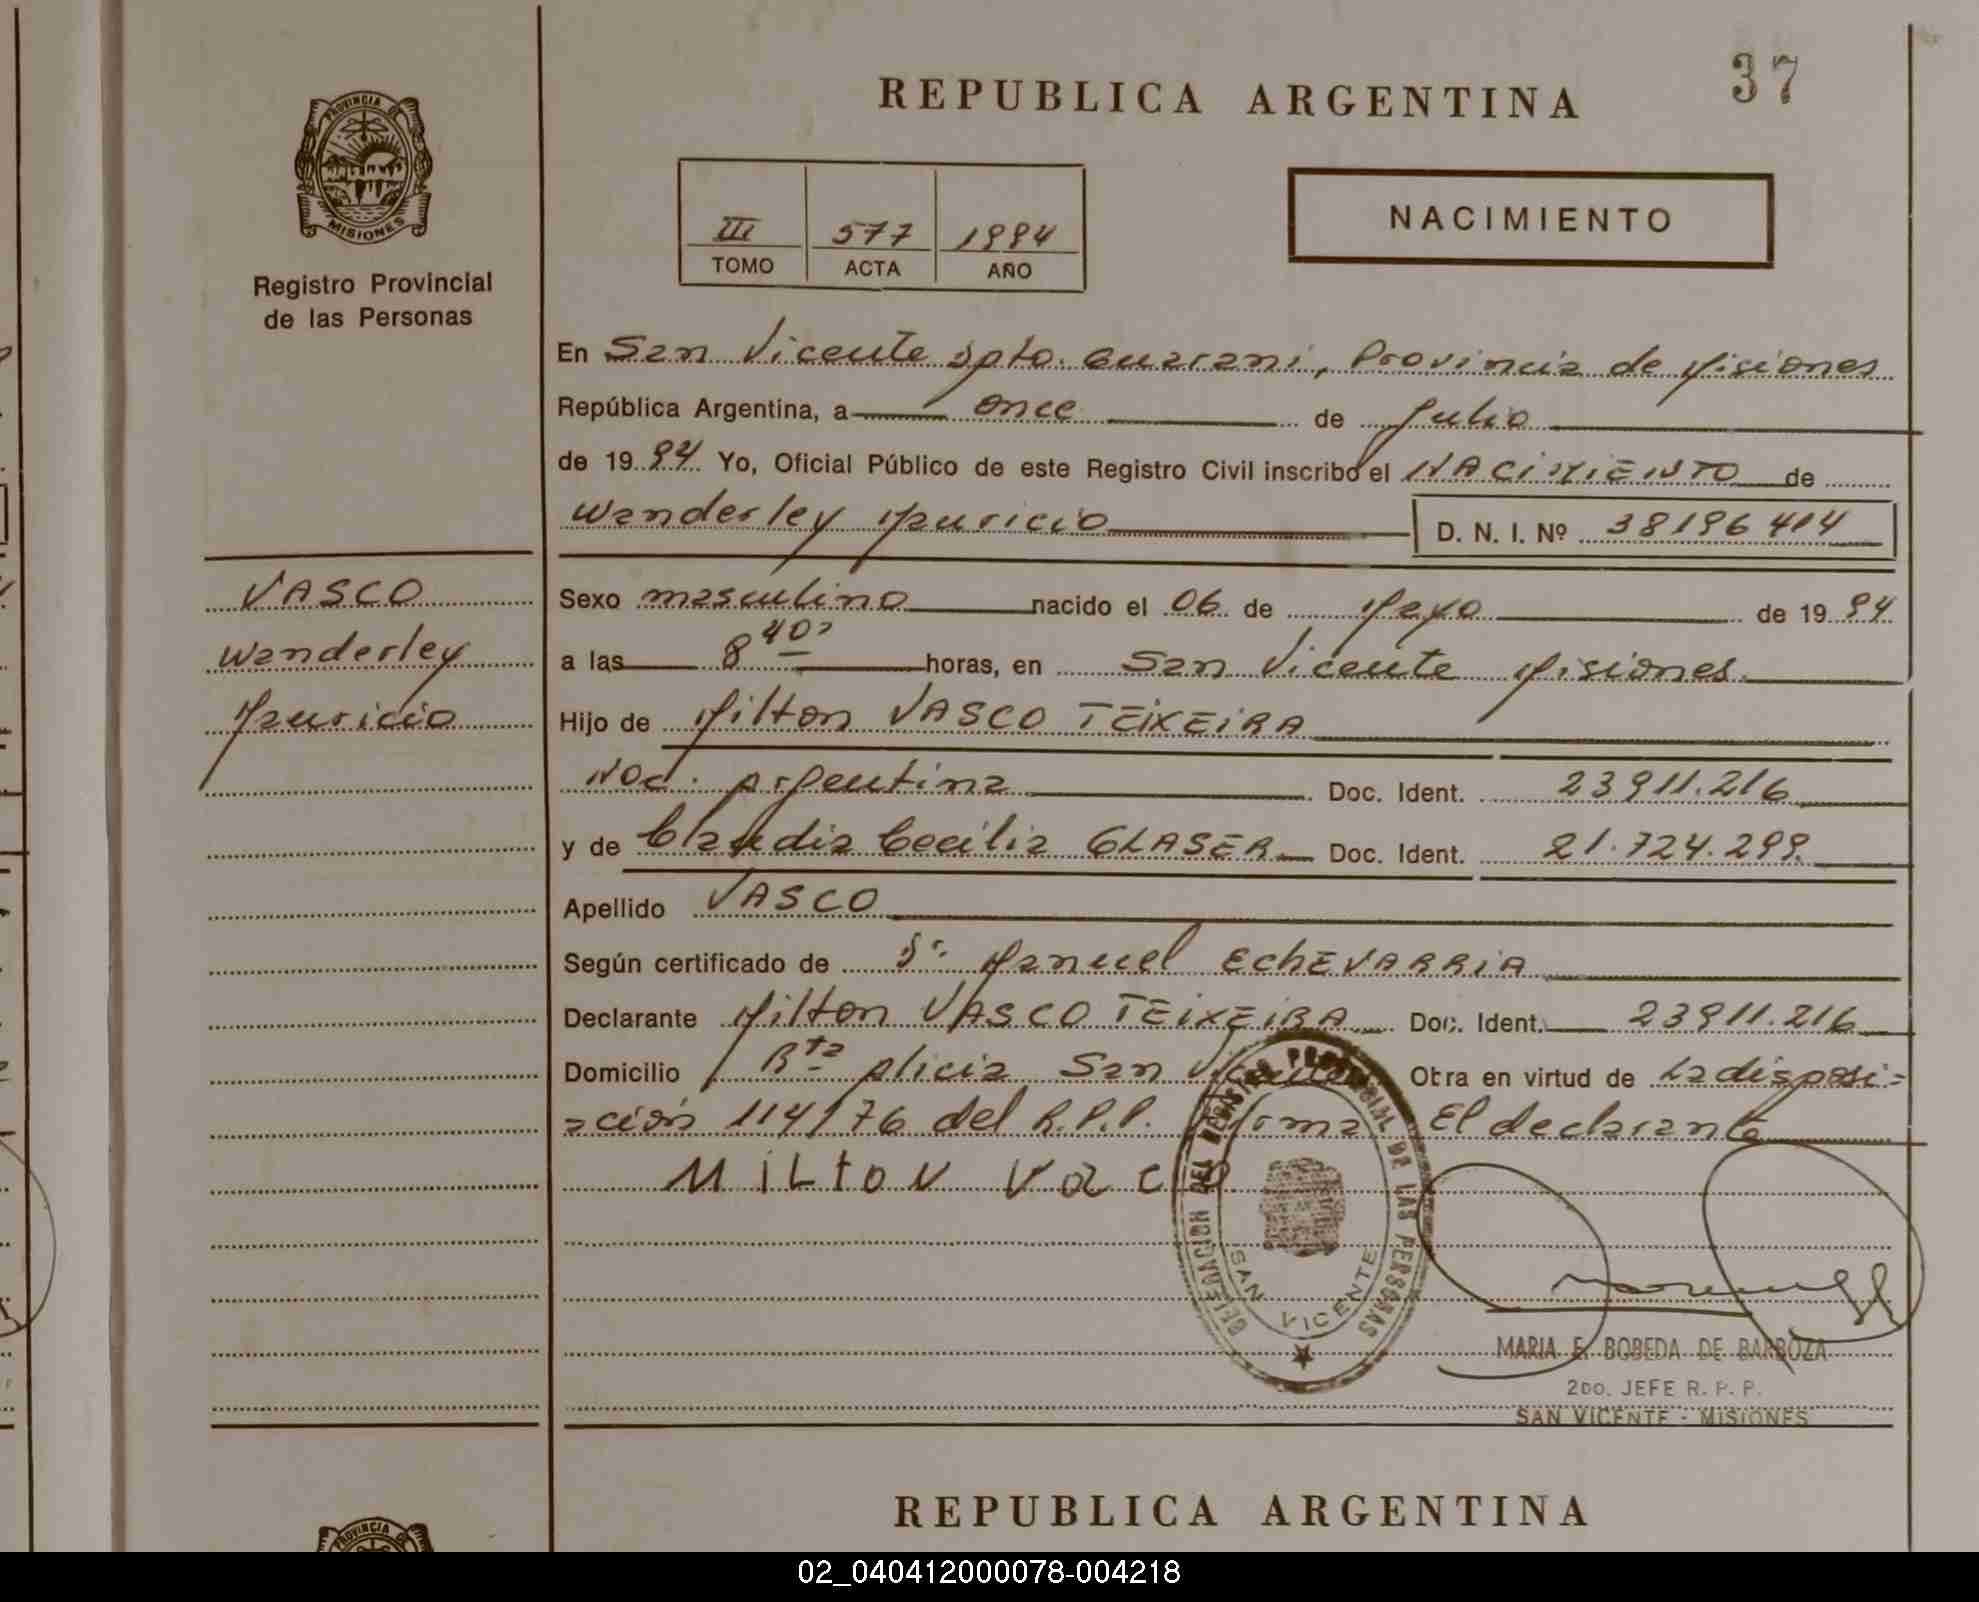 37
REPUBLICA ARGENTINA
PROVINCIA DE
MISIONES
Registro Provincial
de las Personas
III 577 1994
TOMO ACTA AÑO
NACIMIENTO
En San Vicente Dpto. Guarani, Provincia de Misiones
República Argentina, a once de Julio
de 1994 Yo, Oficial Público de este Registro Civil inscribo el NACIMIENTO de
Wanderley Mauricio D. N. I. Nº 38196414
VASCO
Wanderley
Mauricio
Sexo masculino nacido el 06 de Mayo de 1994
a las 8 40 horas, en San Vicente Misiones.
Hijo de Milton VASCO TEIXEIRA
Nac. Argentina Doc. Ident. 23911.216
y de Claudia Cecilia GLASER Doc. Ident. 21.724.299.
Apellido VASCO
Según certificado de Dr. Manuel ECHEVARRIA
Declarante Milton VASCO TEIXEIRA Doc. Ident. 23911.216
Domicilio Rta Alicia San Vicente Obra en virtud de la disposi=
ación 114/76 del R.P.P. Firma El declarante
MILTON Vaco
DELEGACION DEL REGISTRO PROVINCIAL DE LAS PERSONAS
SAN VICENTE
MARIA E. BOBEDA DE BARBOZA
2DO. JEFE R. P. P.
SAN VICENTE - MISIONES
REPUBLICA ARGENTINA
PROVINCIA D
02_040412000078-004218